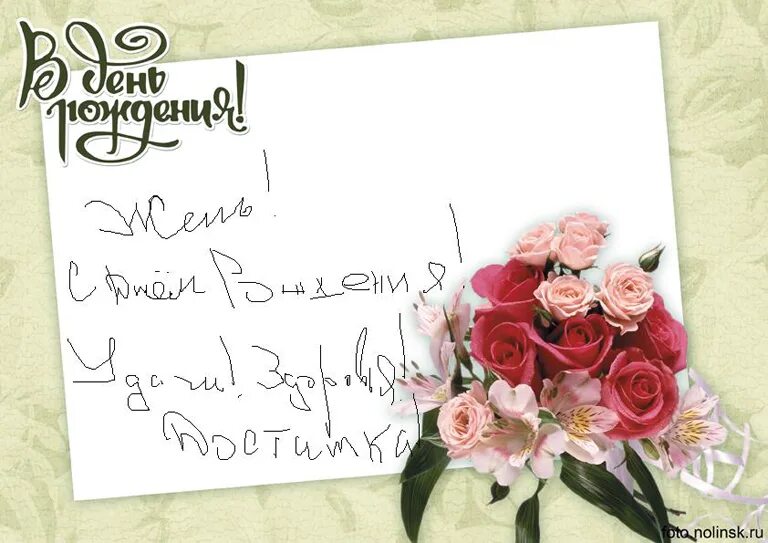 В день
рождения!
Жень!
С Днём Рождения!
Удачи! Здоровья!
Достатка!
foto.nolinsk.ru